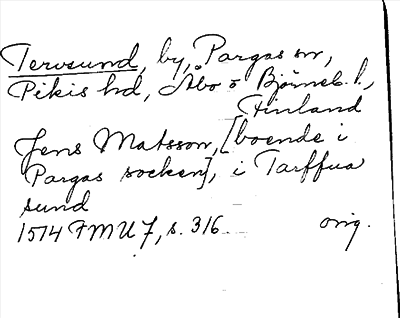 Tervsund, by, Pargas sn,
Pikis hd, Åbo o Björneb. l.,
Finland
Jens Matsson, [boende i
Pargas socken], i Tarffua
sund
1514 FMU 7, s. 316 orig.